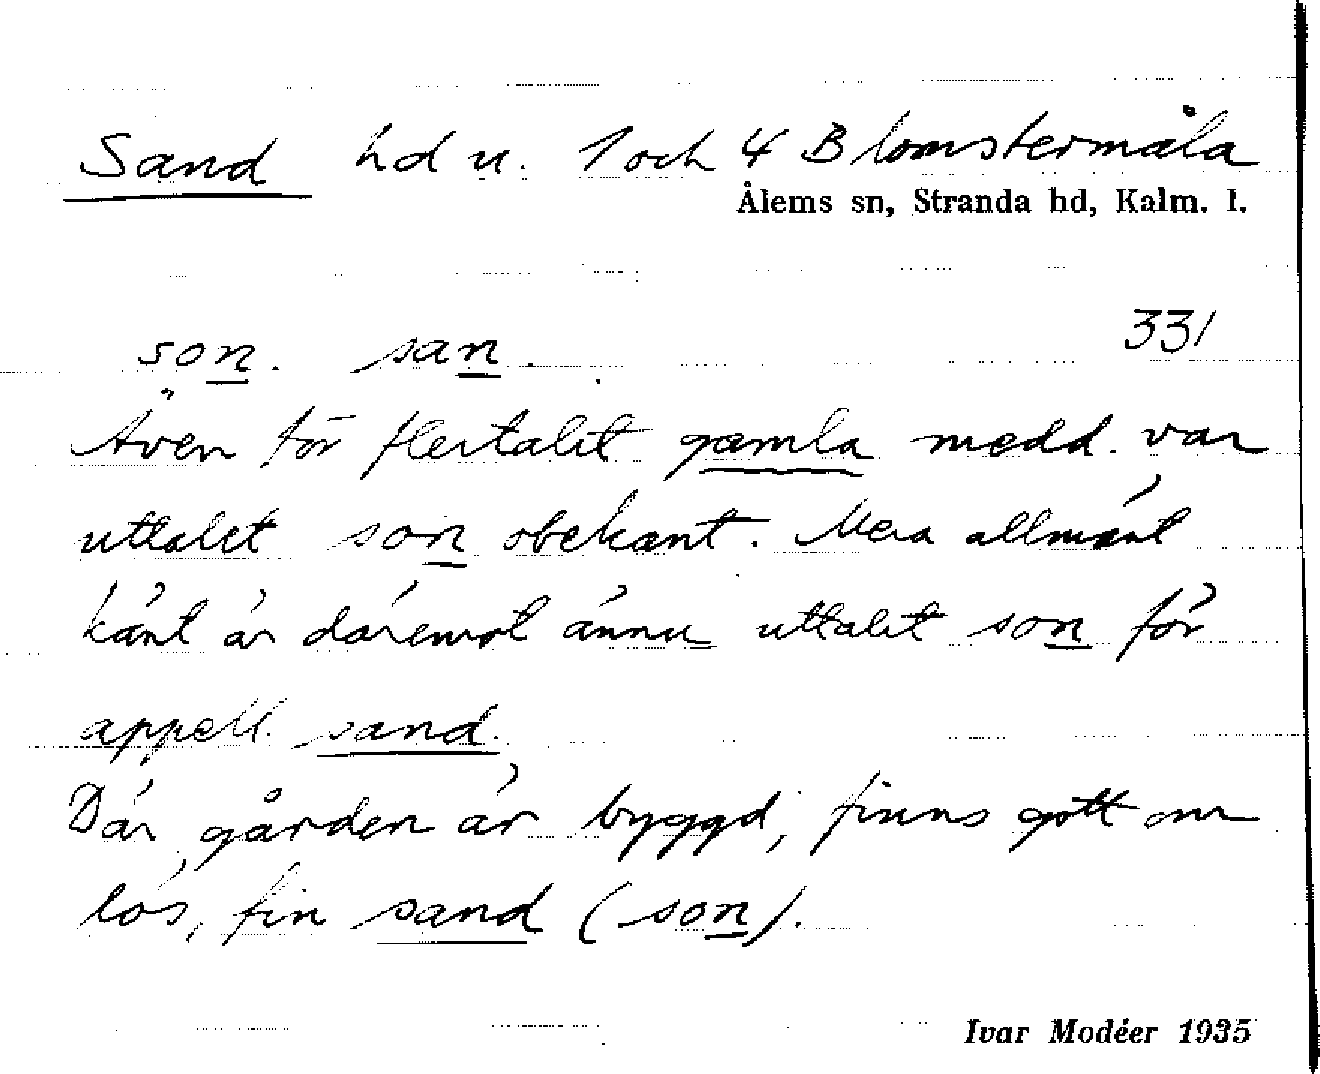 Sand hd u. 1 och 4 Blomstermåla
Ålems sn, Stranda hd, Kalm. l.
son. san. 331
Även för flertalet gamla medd. var
uttalet son obekant. Mera allmänt
känt är däremot ännu uttalet son för
appell. sand.
Där gården är byggd, finns gott om
lös, fin sand (son).
Ivar Modéer 1935